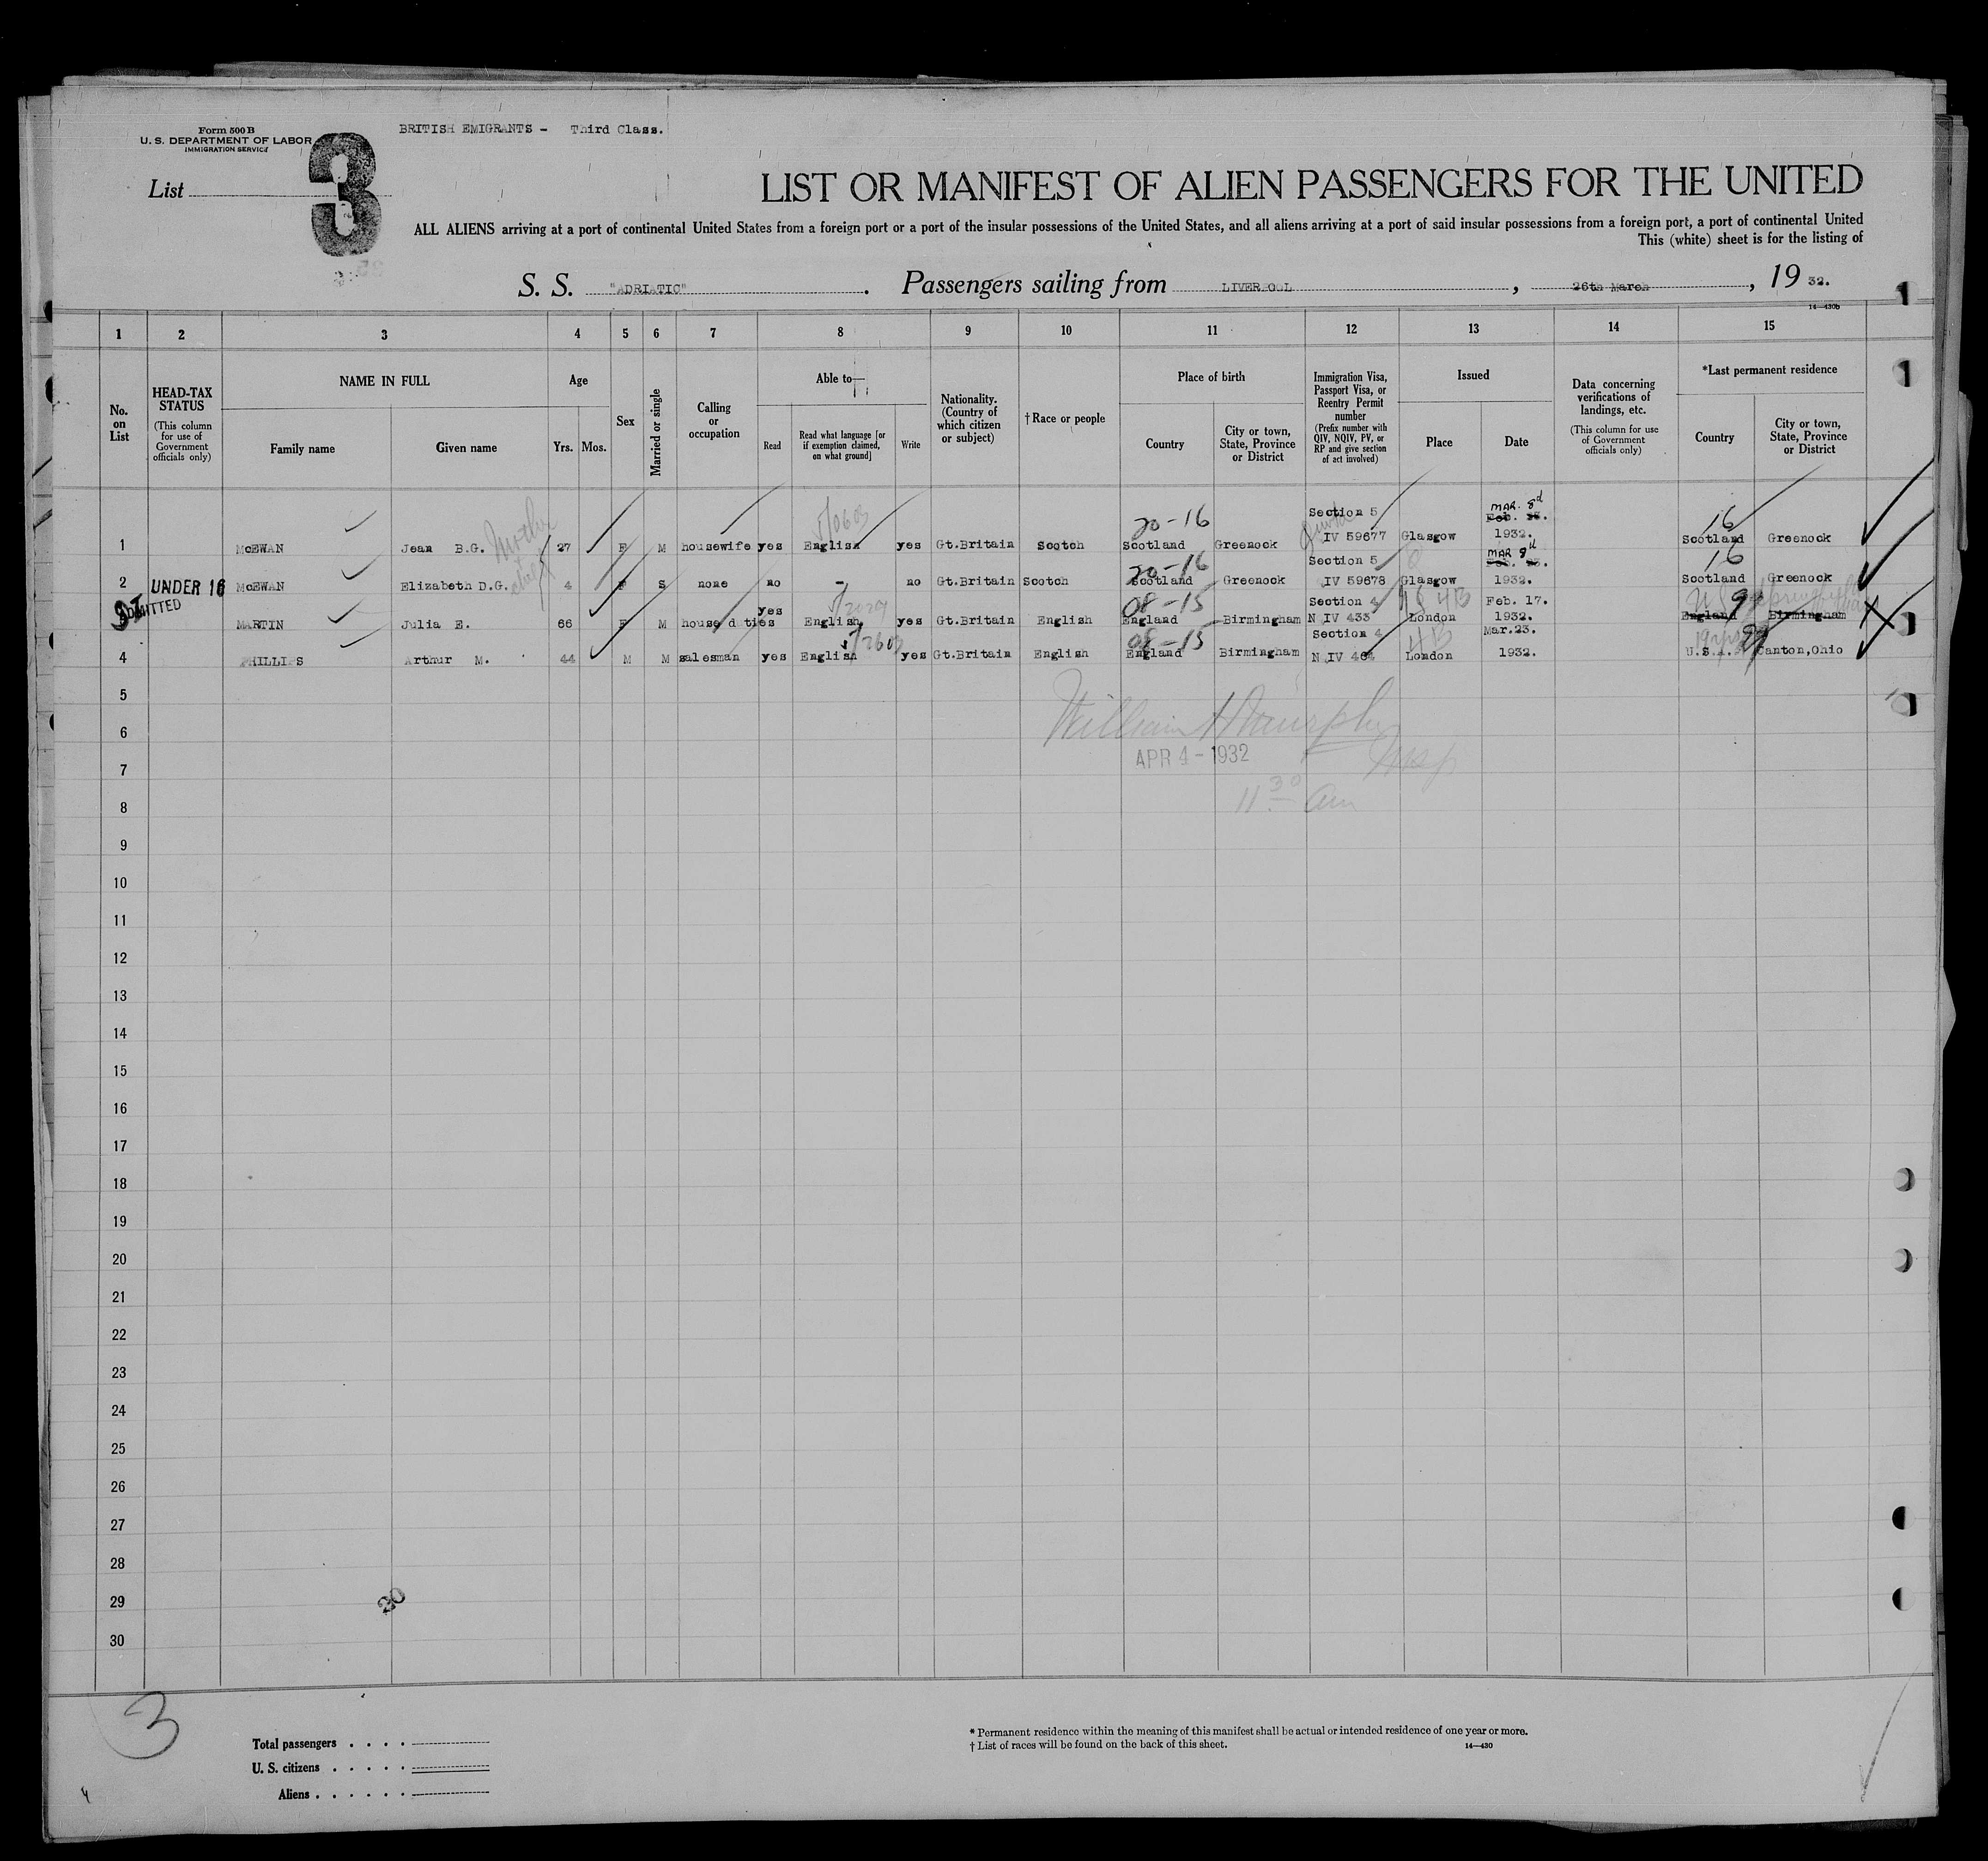 Form 500 B
U. S. DEPARTMENT OF LABOR
IMMIGRATION SERVICE
BRITISH EMIGRANTS - Third Class.
List
3
LIST OR MANIFEST OF ALIEN PASSENGERS FOR THE UNITED
ALL ALIENS arriving at a port of continental United States from a foreign port or a port of the insular possessions of the United States, and all aliens arriving at a port of said insular possessions from a foreign port, a port of continental United
This (white) sheet is for the listing of
S. S. "ADRIATIC". Passengers sailing from LIVERPOOL, 26th March, 19 32.
14—430b
1 2 3 4 5 6 7 8 9 10 11 12 13 14 15
No. on List
HEAD-TAX STATUS
(This column for use of Government officials only)
NAME IN FULL
Family name
Given name
Age
Yrs. Mos.
Sex
Married or single
Calling or occupation
Able to—
Read
Read what language [or if exemption claimed, on what ground]
Write
Nationality. (Country of which citizen or subject)
† Race or people
Place of birth
Country
City or town, State, Province or District
Immigration Visa, Passport Visa, or Reentry Permit number
(Prefix number with QIV, NQIV, PV, or RP and give section of act involved)
Issued
Place
Date
Data concerning verifications of landings, etc.
(This column for use of Government officials only)
*Last permanent residence
Country
City or town, State, Province or District
Mother
5/0603 20-16 Section 5 MAR. 8d Feb. 16
1 McEWAN Jean B.G. 27 F M housewife yes English yes Gt.Britain Scotch Scotland Greenock IV 59677 Glasgow 1932. Scotland Greenock
20-16 Section 5 MAR 8d 16
2 UNDER 16 McEWAN Elizabeth D.G. 4 F S none no - no Gt.Britain Scotch Scotland Greenock IV 59678 Glasgow 1932. Scotland Greenock
SI ADMITTED yes 08-15 Section 4 4B Feb. 17. 99
MARTIN Julia E. 66 F M house duties English yes Gt.Britain English England Birmingham N IV 433 London 1932. England Birmingham
5/2603 08-15 Section 4 4B Mar.23.
4 PHILLIPS Arthur M. 44 M M salesman yes English yes Gt.Britain English England Birmingham N IV 464 London 1932. U.S.A. Canton,Ohio
5
William H Murphy
6
APR 4 - 1932 Insp
7
11 30 am
8
9
10
11
12
13
14
15
16
17
18
19
20
21
22
23
24
25
26
27
28
29
30
30
3
Total passengers
U. S. citizens
Aliens
* Permanent residence within the meaning of this manifest shall be actual or intended residence of one year or more.
† List of races will be found on the back of this sheet.
14—430